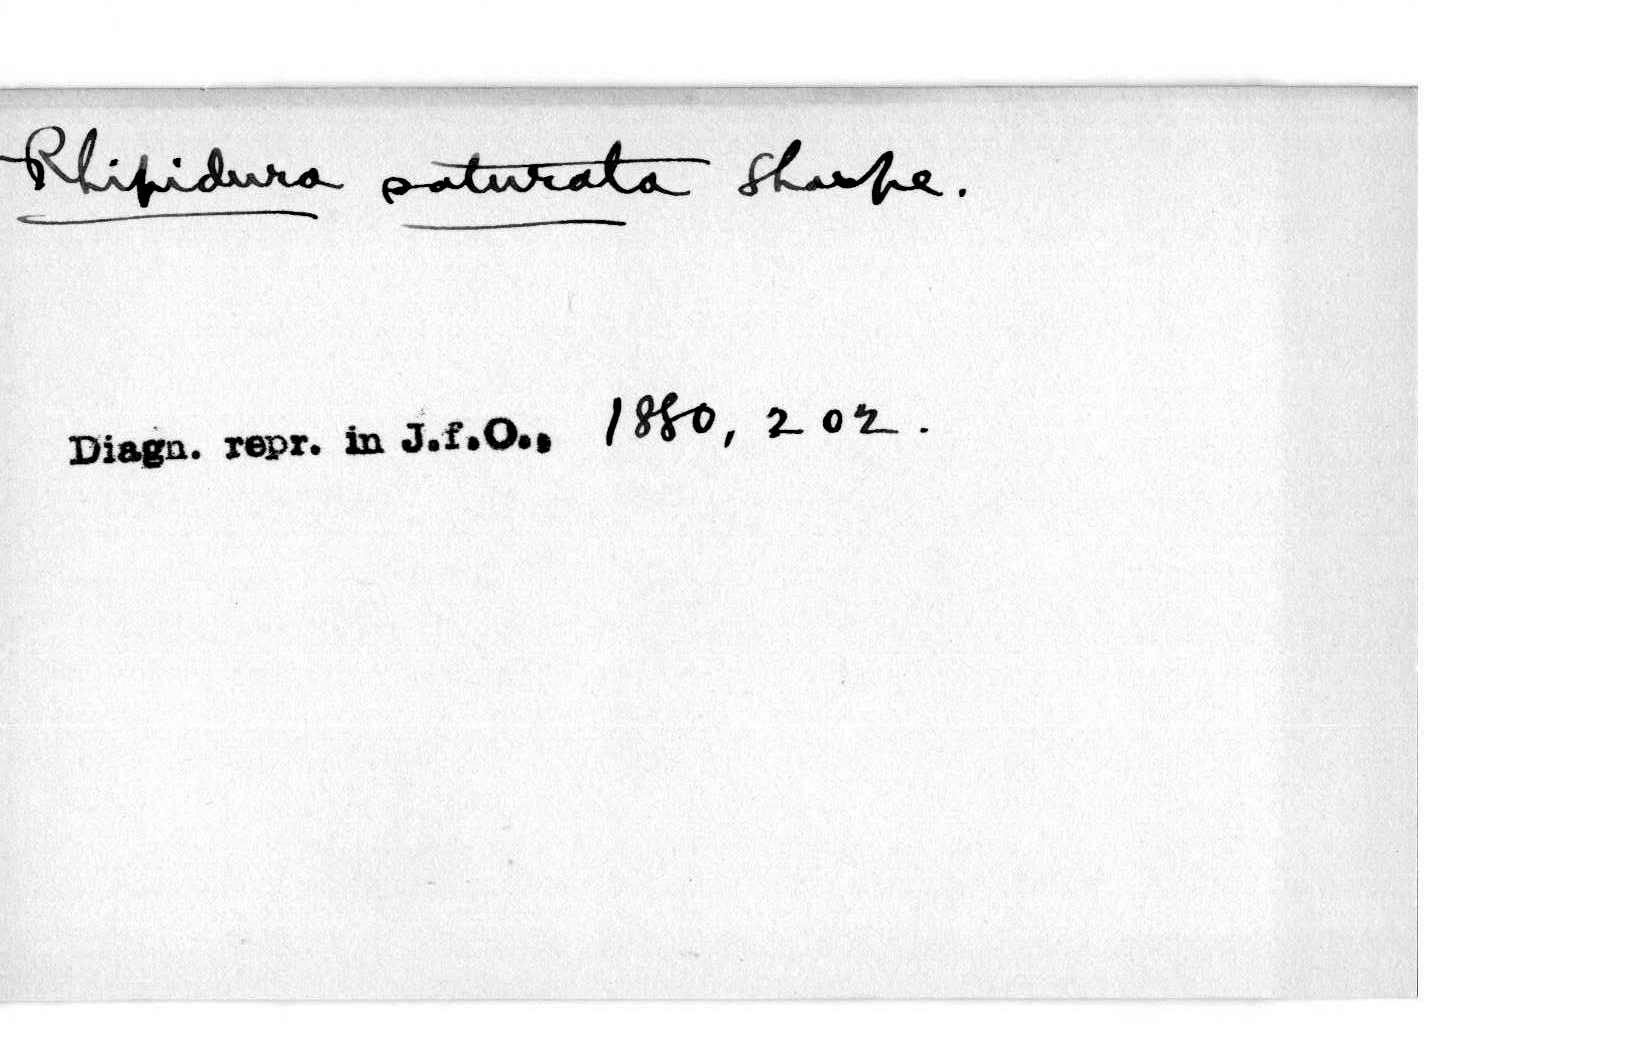 Rhipidura saturata Sharpe.
Diagn. repr. in J.f.O., 1880, 202.